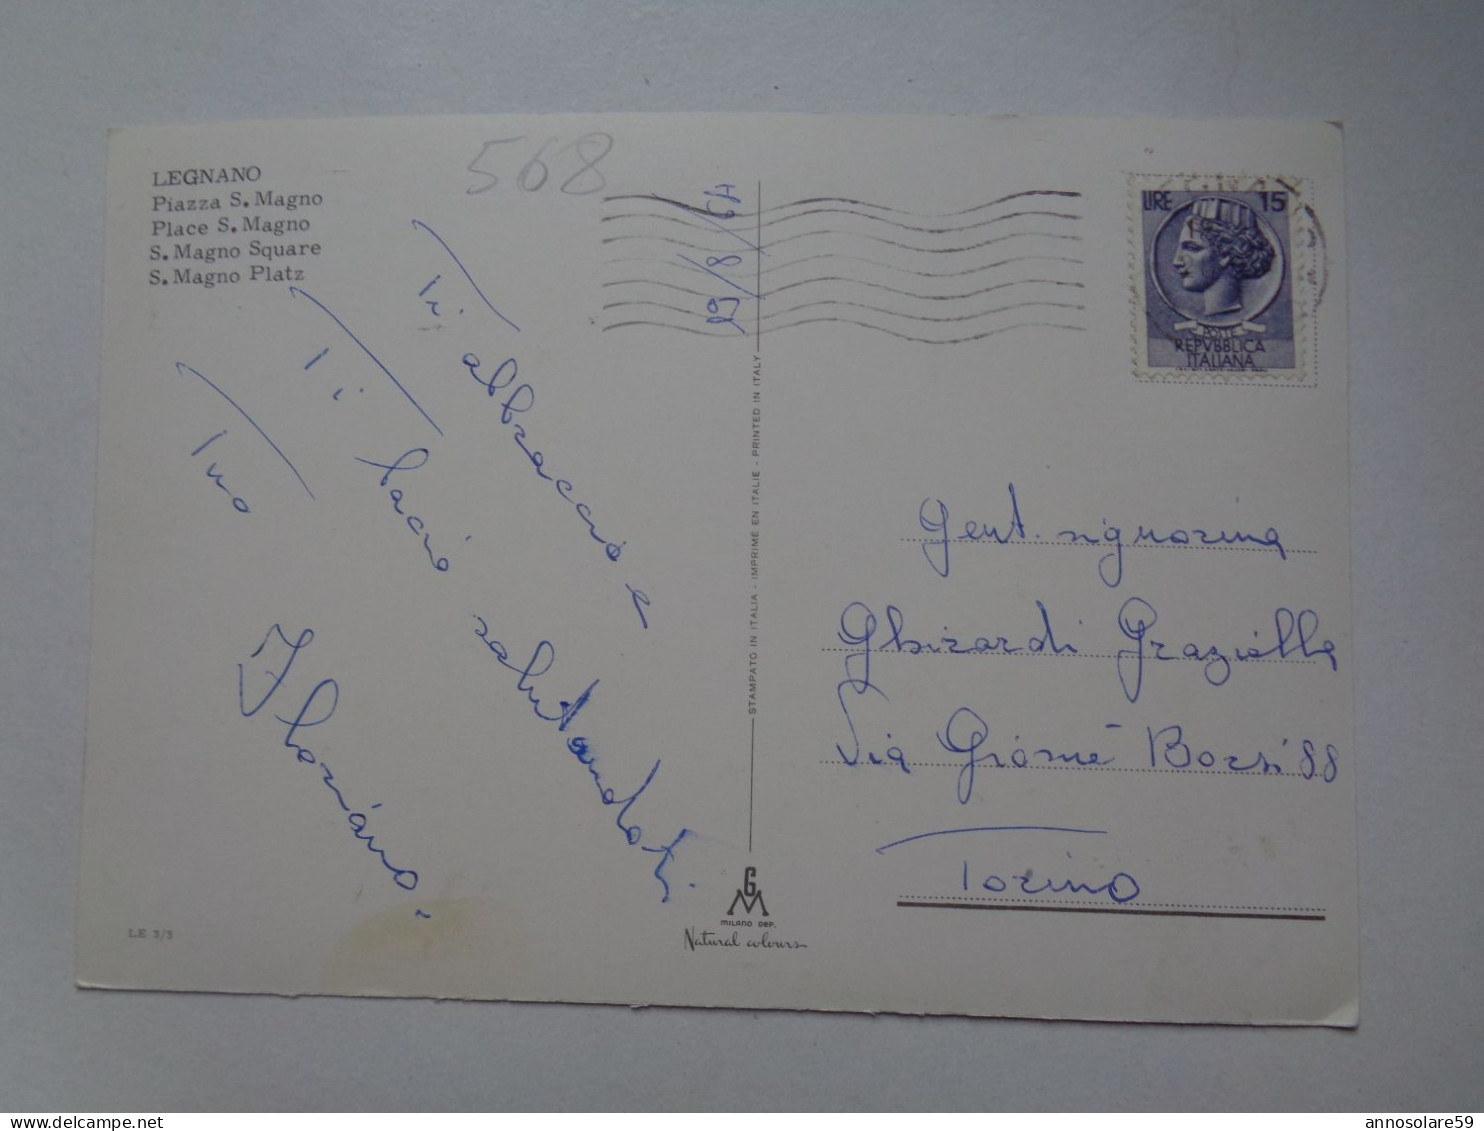 LEGNANO
Piazza S. Magno
Place S. Magno
S. Magno Square
S. Magno Platz
568
29/8/64
Ti abbraccio e
Ti bacio salutandoti
Tuo
Floriano.
LIRE 15
POSTE
REPVBBLICA
ITALIANA
STAMPATO IN ITALIA - IMPRIME EN ITALIE - PRINTED IN ITALY
Gent. signorina
Ghirardi Graziella
Via Giosuè Borsi 88
Torino
GM
MILANO DEP.
Natural colours
LE 3/3
annosolare59